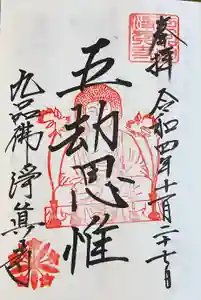 奉拝
令和四年十一月二十七日
五劫思惟
九品佛浄眞寺